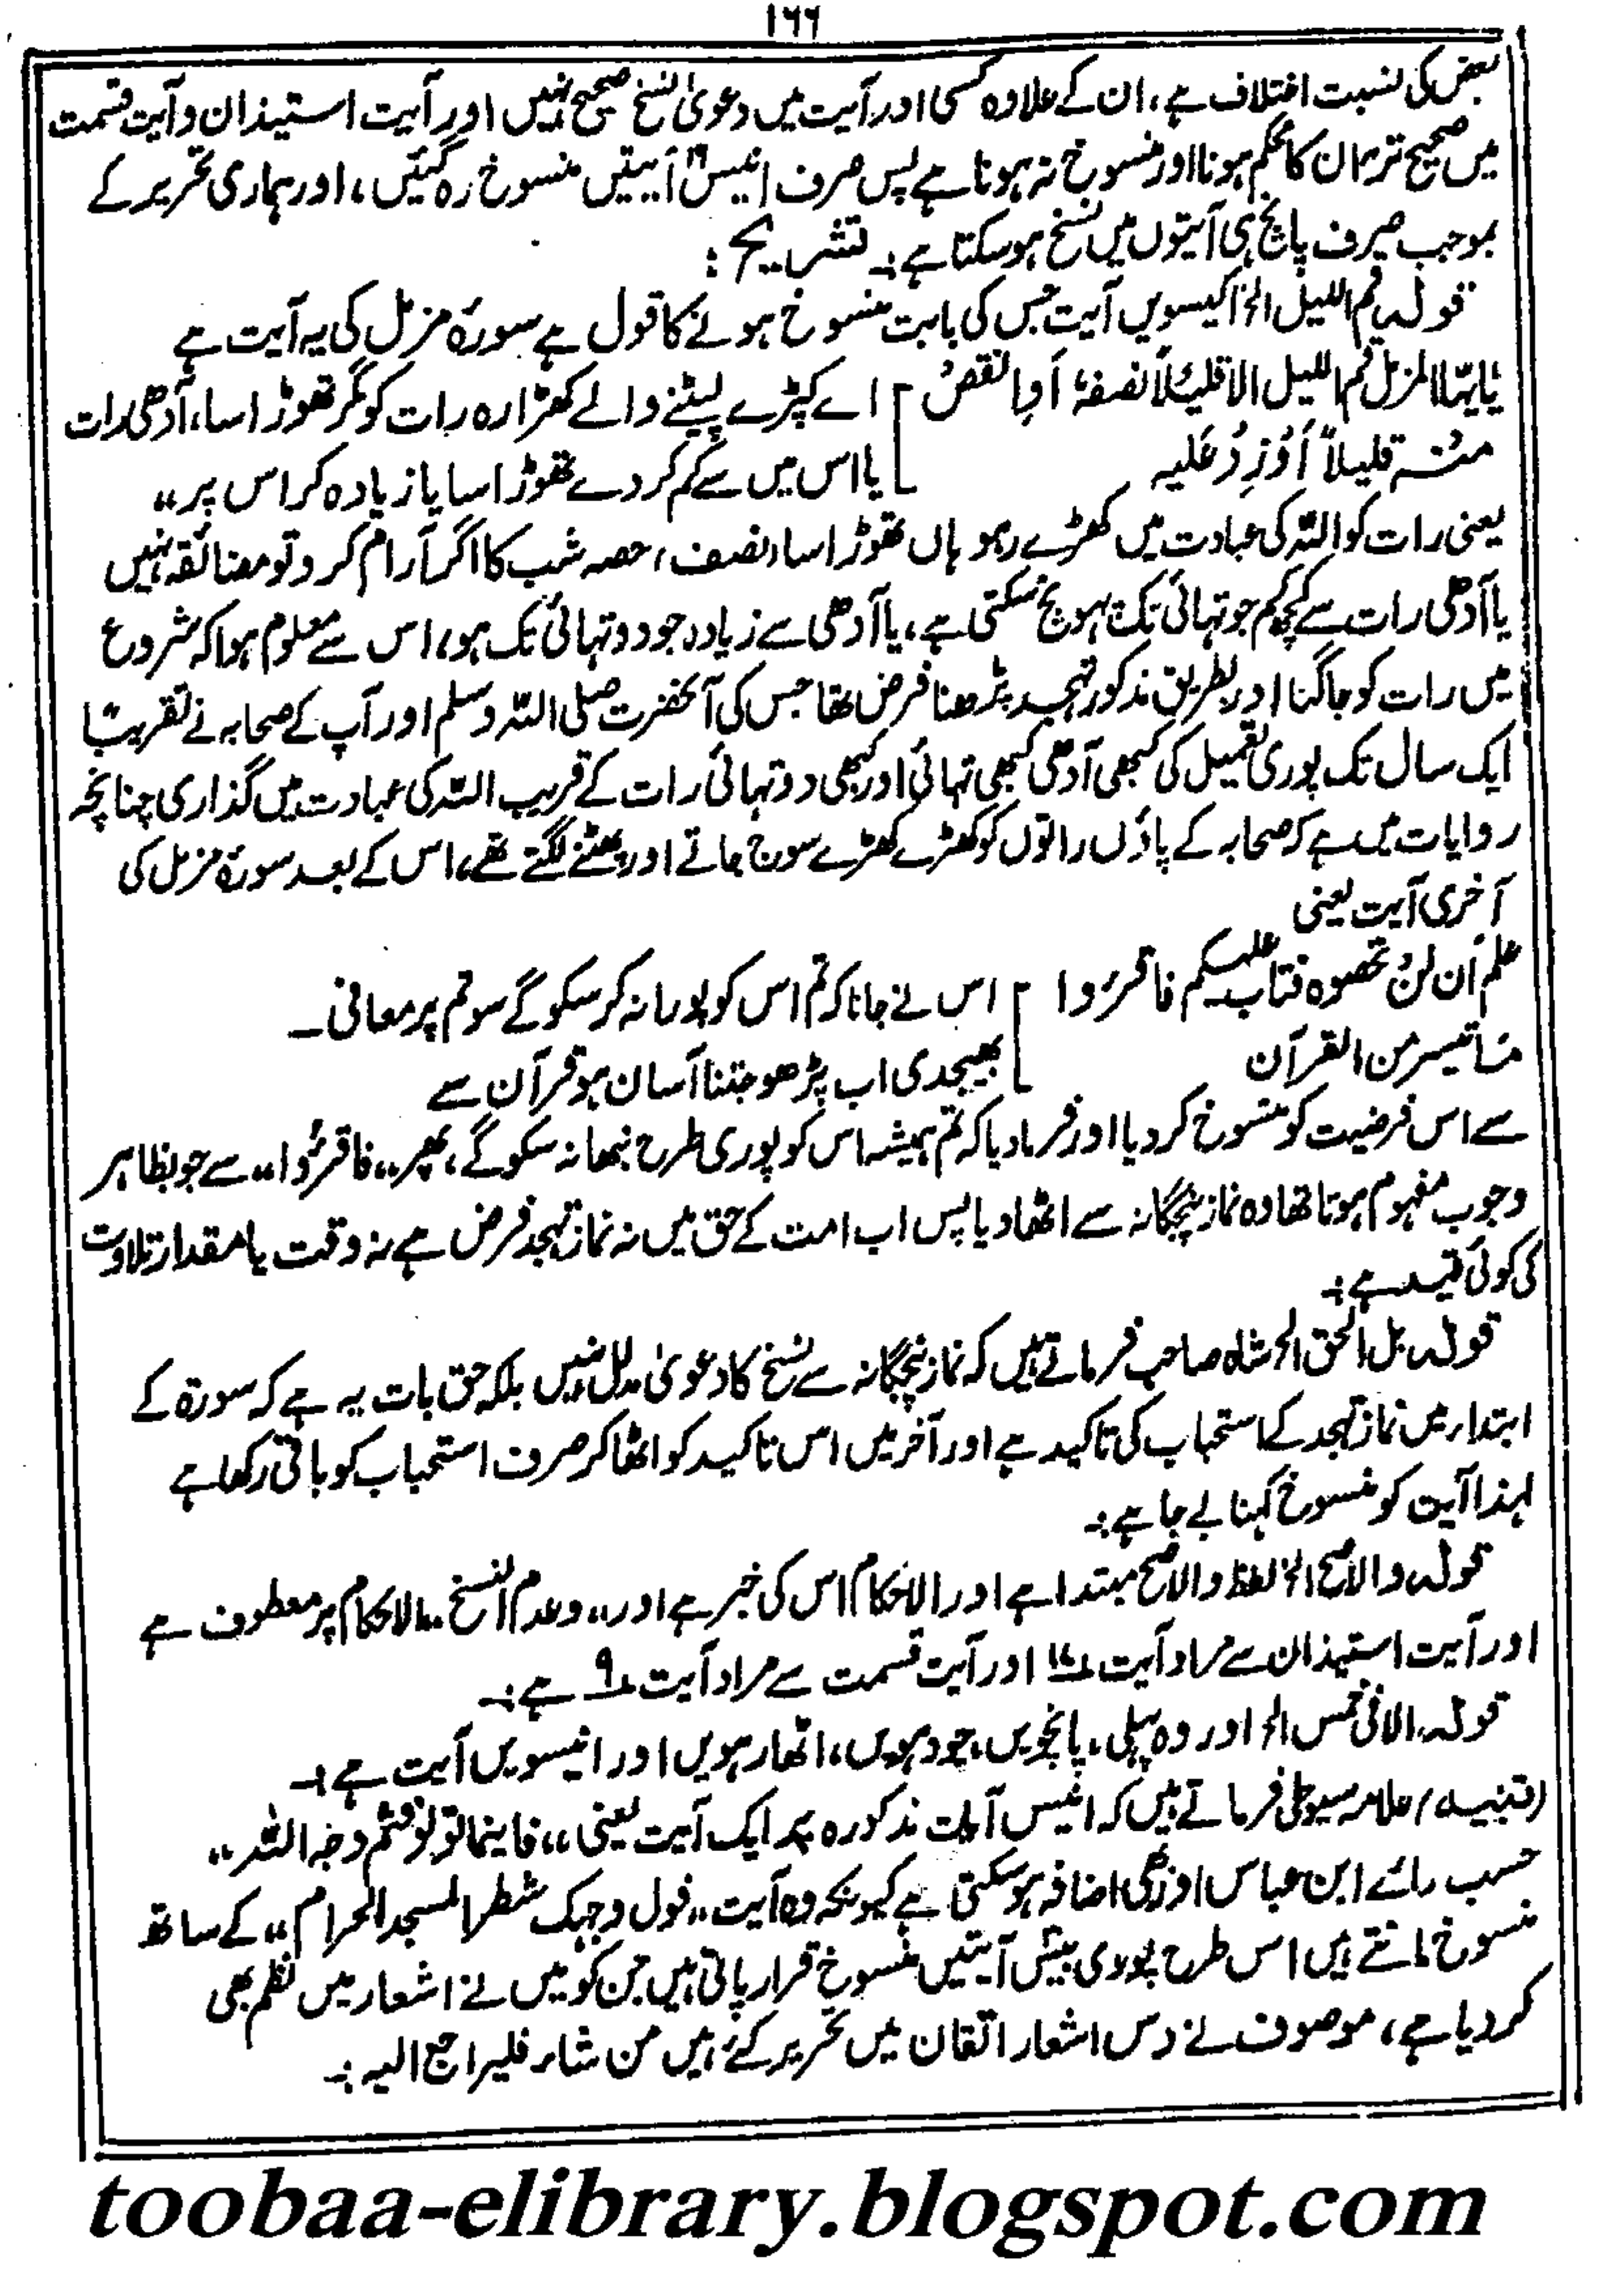 ۱۶۶
بعض کی نسبت اختلاف ہے، ان کے علاوہ کسی اور آیت میں دعویٰ نسخ صحیح نہیں اور آیت استیذان و آیت قسمت
میں صحیح تر ان کا محکم ہونا اور منسوخ نہ ہونا ہے پس صرف انیس ۱۹ آیتیں منسوخ رہ گئیں، اور ہماری تحریر کے
بموجب صرف پانچ ہی آیتوں میں نسخ ہو سکتا ہے:۔ تشریح:
قولہ قم اللیل الخ اکیسویں آیت جس کی بابت منسوخ ہونے کا قول ہے سورۂ مزمل کی یہ آیت ہے
یٰایہا المزمل قم اللیل الا قلیلاً نصفہٗ اوانقص ] اے کپڑے لپیٹنے والے کھڑا رہ رات کو مگر تھوڑا سا، آدھی رات
منہ قلیلاً أوْزِدْ عَلَیہ ] یا اس میں سے کم کر دے تھوڑا سا یا زیادہ کر اس پر،،
یعنی رات کو اللہ کی عبادت میں کھڑے رہو ہاں تھوڑا سا، نصف، حصہ شب کا اگر آرام کرو تو مضائقہ نہیں
یا آدھی رات سے کچھ کم جو تہائی تک پہونچ سکتی ہے، یا آدھی سے زیادہ جو دو تہائی تک ہو، اس سے معلوم ہوا کہ شروع
میں رات کو جاگنا اور بطریق مذکور تہجد پڑھنا فرض تھا جس کی آنحضرت صلی اللہ وسلم اور آپ کے صحابہ نے تقریبًا
ایک سال تک پوری تعمیل کی کبھی آدھی کبھی تہائی اور کبھی دو تہائی رات کے قریب اللہ کی عبادت میں گذاری چنانچہ
روایات میں ہے کہ صحابہ کے پاؤں راتوں کو کھڑے کھڑے سوج جاتے اور پھٹنے لگتے تھے، اس کے بعد سورۂ مزمل کی
آخری آیت یعنی
علم اَن لنْ تحصوہ فتاب علیکم فاقرؤا ] اس نے جانا کہ تم اس کو پورا نہ کر سکو گے سو تم پر معافی۔
مَا تیسر من القرآن ] بھیجدی اب پڑھو جتنا آسان ہو قرآن سے
سے اس فرضیت کو منسوخ کر دیا اور فرمادیا کہ تم ہمیشہ اس کو پوری طرح نبھا نہ سکو گے، پھر،، فاقرؤا،، سے جو بظاہر
وجوب مفہوم ہوتا تھا وہ نماز پنجگانہ سے اٹھادیا پس اب امت کے حق میں نہ نماز تہجد فرض ہے نہ وقت یا مقدار تلاوت
کی کوئی قید ہے:۔
قولہ بل الحق الخ شاہ صاحب فرماتے ہیں کہ نماز پنجگانہ سے نسخ کا دعویٰ مدلل نہیں بلکہ حق بات یہ ہے کہ سورۃ کے
ابتدار میں نماز تہجد کے استحباب کی تاکید ہے اور آخر میں اس تاکید کو اٹھا کر صرف استحباب کو باقی رکھا ہے
لہذا آیت کو منسوخ کہنا بے جا ہے:۔
قولہ والاصح الخ لفظ والاصح مبتدا ہے اور الاحکام اس کی خبر ہے اور،، وعدم النسخ،، الاحکام پر معطوف ہے
اور آیت استیذان سے مراد آیت اور آیت قسمت سے مراد آیت ۹ ہے:۔
قولہ الافی خمس الخ اور وہ پہلی، پانچویں، چودہویں، اٹھارہویں اور انیسویں آیت ہے:۔
(تنبیہ) علامہ سیوطی فرماتے ہیں کہ انیس آیات مذکورہ پر ایک آیت یعنی،، فاینما تولوا فثم وجہ اللہ،،
حسب رائے ابن عباس اور بھی اضافہ ہو سکتی ہے کیونکہ وہ آیت،، فول وجہک شطر المسجد الحرام،، کے ساتھ
منسوخ مانتے ہیں اس طرح پوری بیس آیتیں منسوخ قرار پاتی ہیں جن کو میں نے اشعار میں نظم بھی
کر دیا ہے، موصوف نے دس اشعار اتقان میں تحریر کئے ہیں من شاء فلیراجع الیہ:۔
toobaa-elibrary.blogspot.com